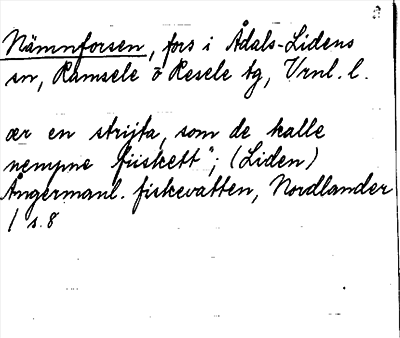 Nämnforsen, fors i Ådals-Lidens
sn, Ramsele o Resele tg, Vrnl. l.
ær en strijta, som de kalle
nempne fiiskett"; (Liden)
Ångermanl. fiskevatten, Nordlander
1 s. 8